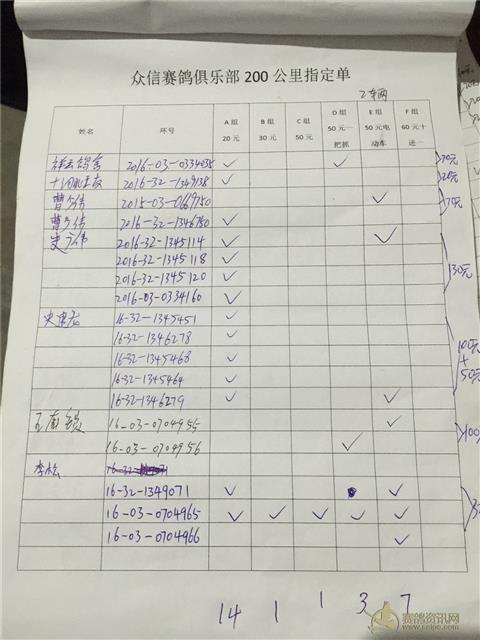 众信赛鸽俱乐部 200 公里指定单
2车两
姓名 环号 A 组 20 元 B 组 30 元 C 组 50 元 D 组 50 元一把抓 E 组 50 元电动车 F 组 60 元十进一
2016-03-0334035 ✓ ✓ 70元
2016-32-1349138 ✓ 20元
曹广伟 2015-03-0669750 ✓ 70元
曹广伟 2016-32-1346750 ✓
史广伟 2016-32-1345114 ✓ ✓ 130元
2016-32-1345118 ✓
2016-32-1345120 ✓
2016-03-0334160 ✓
16-32-1345451 ✓ 100元
16-32-1346278 ✓ +
16-32-1345468 ✓ 50元
16-32-1345464 ✓
16-32-1346279 ✓ ✓
16-03-0704955 ✓ 100
16-03-0704956 ✓
李松
16-32-1349071 ✓ ✓
16-03-0704965 ✓ ✓ ✓ ✓ ✓
16-03-0704966 ✓
14 1 1 3 7
赛鸽资讯网